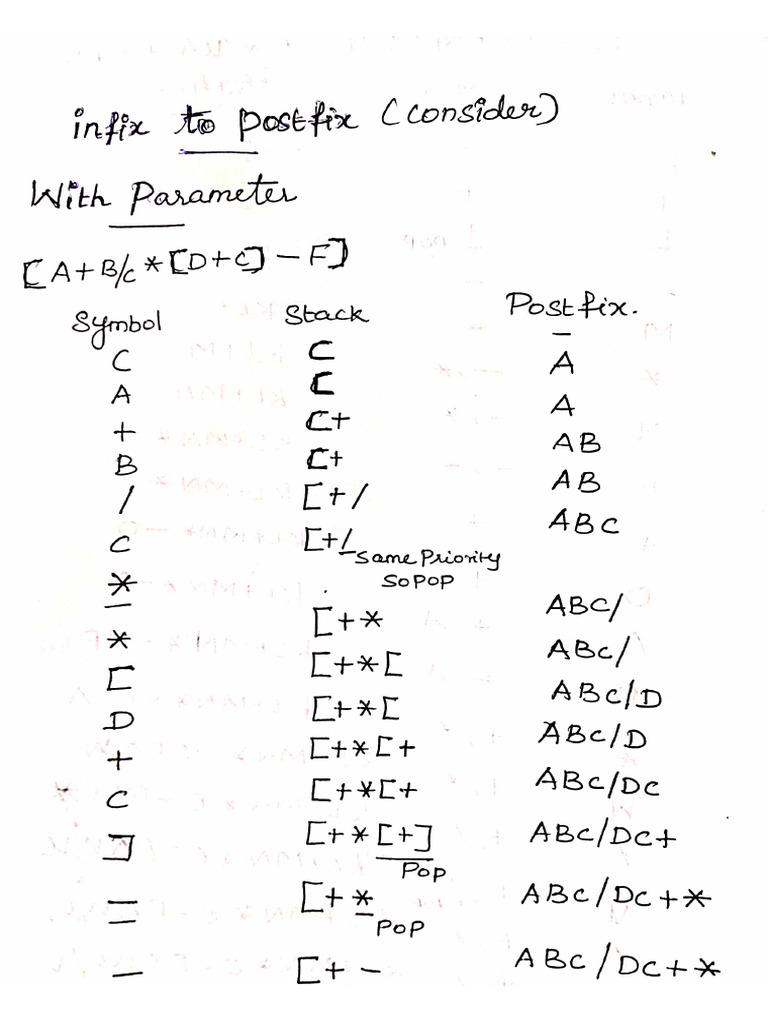 infix to postfix (consider)
With Parameter
[A+B/c*[D+C]-F]
Symbol Stack Postfix.
C C –
A C A
+ C+ A
B C+ AB
/ [+/ AB
C [+/ ABC
* Same Priority
SO POP
* [+* ABC/
[ [+*[ ABC/
D [+*[ ABC/D
+ [+*[+ ABC/D
C [+*[+ ABC/DC
] [+*[+] ABC/DC+
POP
= [+* ABC/DC+*
POP
– [+- ABC/DC+*